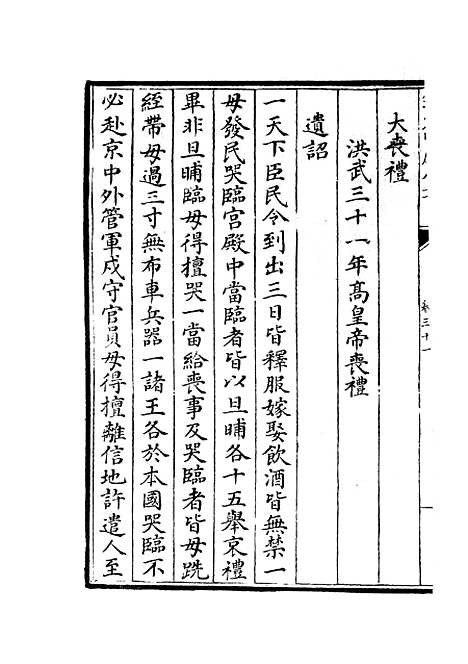 大喪禮
洪武三十一年高皇帝喪禮
遺詔
一天下臣民令到出三日皆釋服嫁娶飲酒皆無禁一
毋發民哭臨宮殿中當臨者皆以旦晡各十五舉哀禮
畢非旦晡臨毋得擅哭一當給喪事及哭臨者皆毋跣
絰帶毋過三寸無布車兵器一諸王各於本國哭臨不
必赴京中外管軍戍守官員毋得擅離信地許遣人至
卷三十一